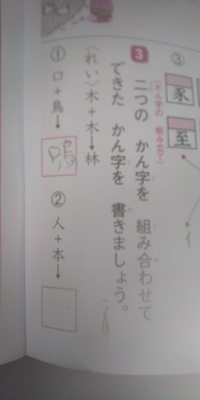 ③
豕
至
イ
3
かん字の組み立て
二つの かん字を 組み合わせて
できた かん字を 書きましょう。
〈れい〉木＋木→林
①口＋鳥→鳴
②人＋本→